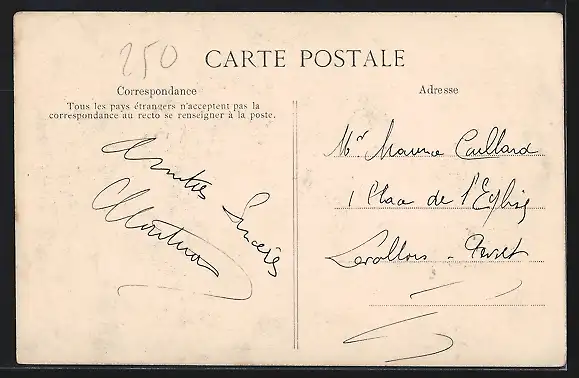 250
CARTE POSTALE
Correspondance
Tous les pays étrangers n'acceptent pas la
correspondance au recto se renseigner à la poste.
Amitiés Sincères
Adresse
Mr Maurice Caillard
1 Place de l'Eglise
Levallois - Perret